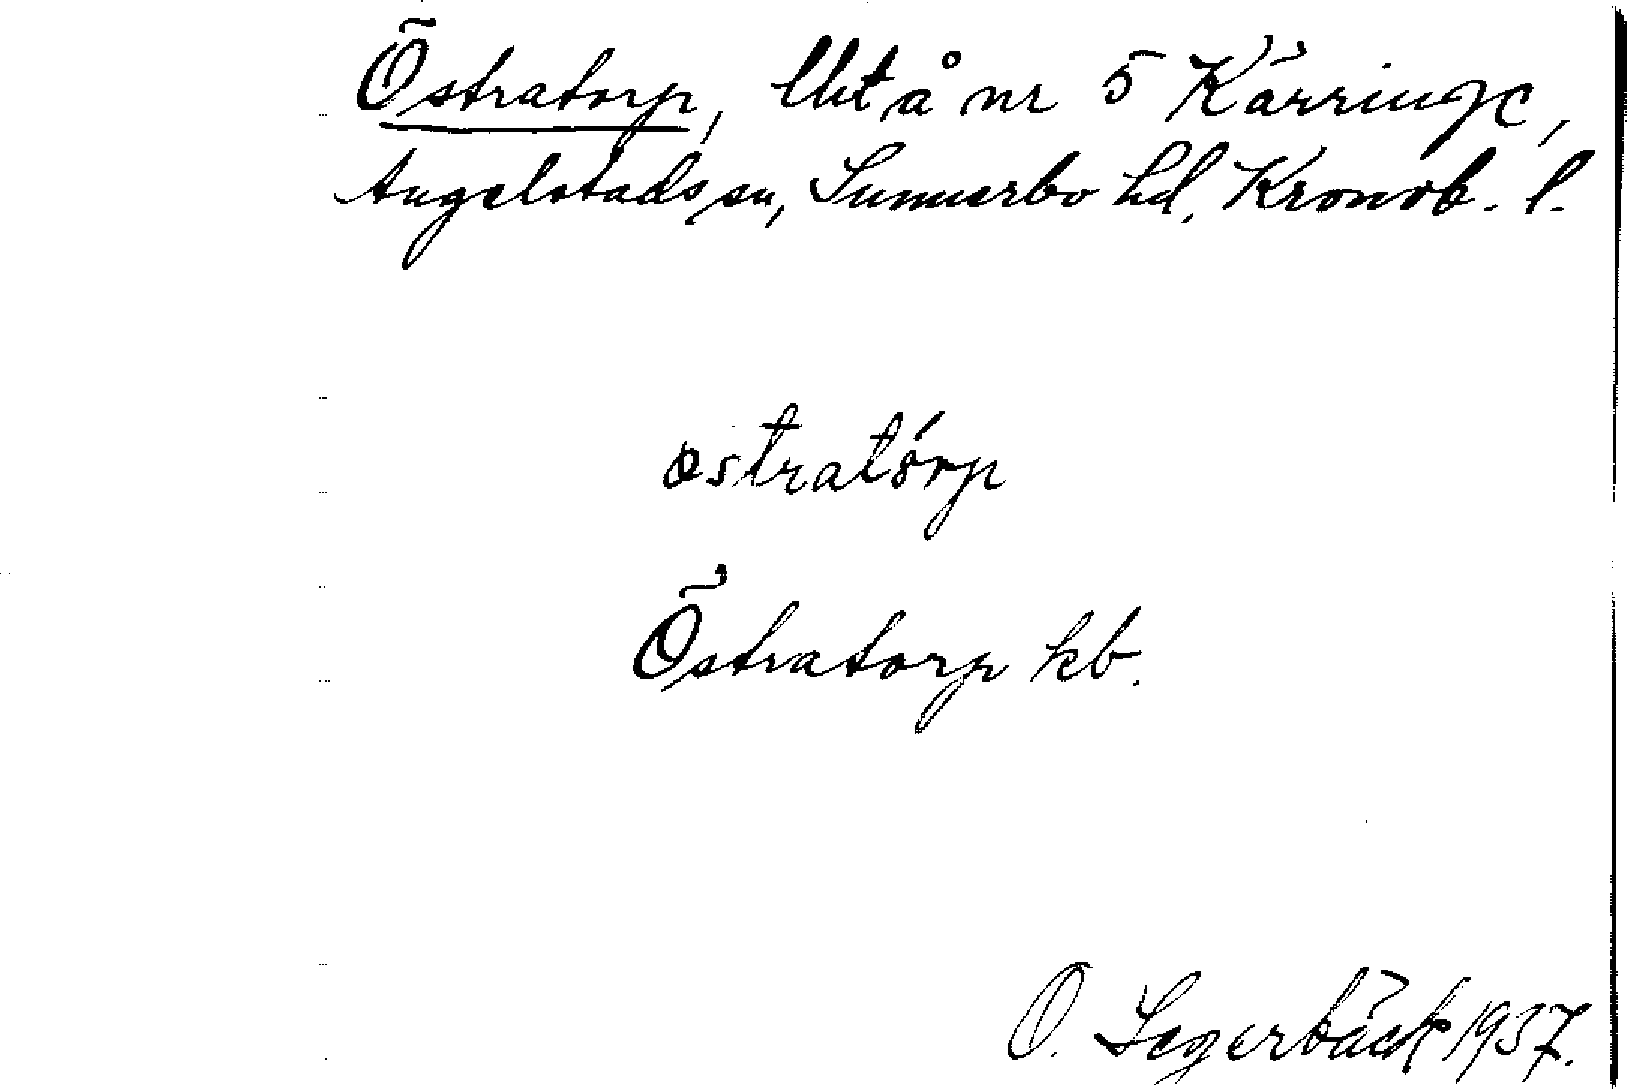 Östratorp, lht å nr 5 Käringe,
Angelstads sn, Sunnerbo hd, Kronob. l.
östratórp
Östratorp kb.
O. Segerbäck 1937.